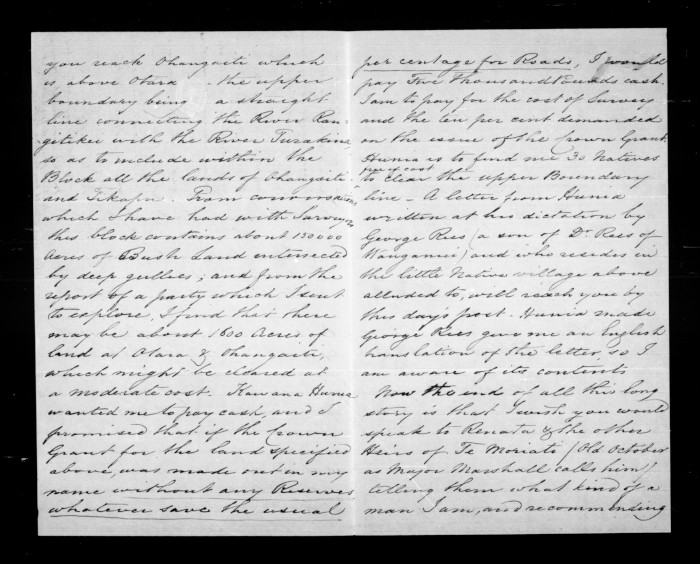 you reach Ohangaiti which
is above Otara - the upper
boundary being a straight
line connecting the River Ran-
gitikei with the River Turakina
so as to include within the
Block all the lands of Ohangaiti
and Tikapu. From conversations
which I have had with Surveyors
this block contains about 130000
Acres of Bush Land intersected
by deep gullies; and from the
report of a party which I sent
to explore, I find that there
may be about 1600 Acres of
land at Otara & Ohangaiti,
which might be cleared at
a moderate cost. Kawana Hunia
wanted me to pay cash, and I
promised that if the Crown
Grant for the land specified
above, was made out in my
name without any Reserves
whatever save the usual
per centage for Roads, I would
pay Five Thousand Pounds cash.
I am to pay for the cost of Survey
and the ten per cent demanded
on the issue of the Crown Grant.
Hunia is to find me 30 Natives
free of cost
to clear the upper Boundary
line - A letter from Hunia
written at his dictation by
George Rees (a son of Dr. Rees of
Wanganui) and who resides in
the little Native village above
alluded to, will reach you by
this day's post. Hunia made
George Rees give me an English
translation of the letter, so I
am aware of its contents
Now the end of all this long
story is that I wish you would
speak to Renata & the other
Heirs of Te Moriati (Old October
as Major Marshall calls him)
telling them what kind of a
man I am, and recommending